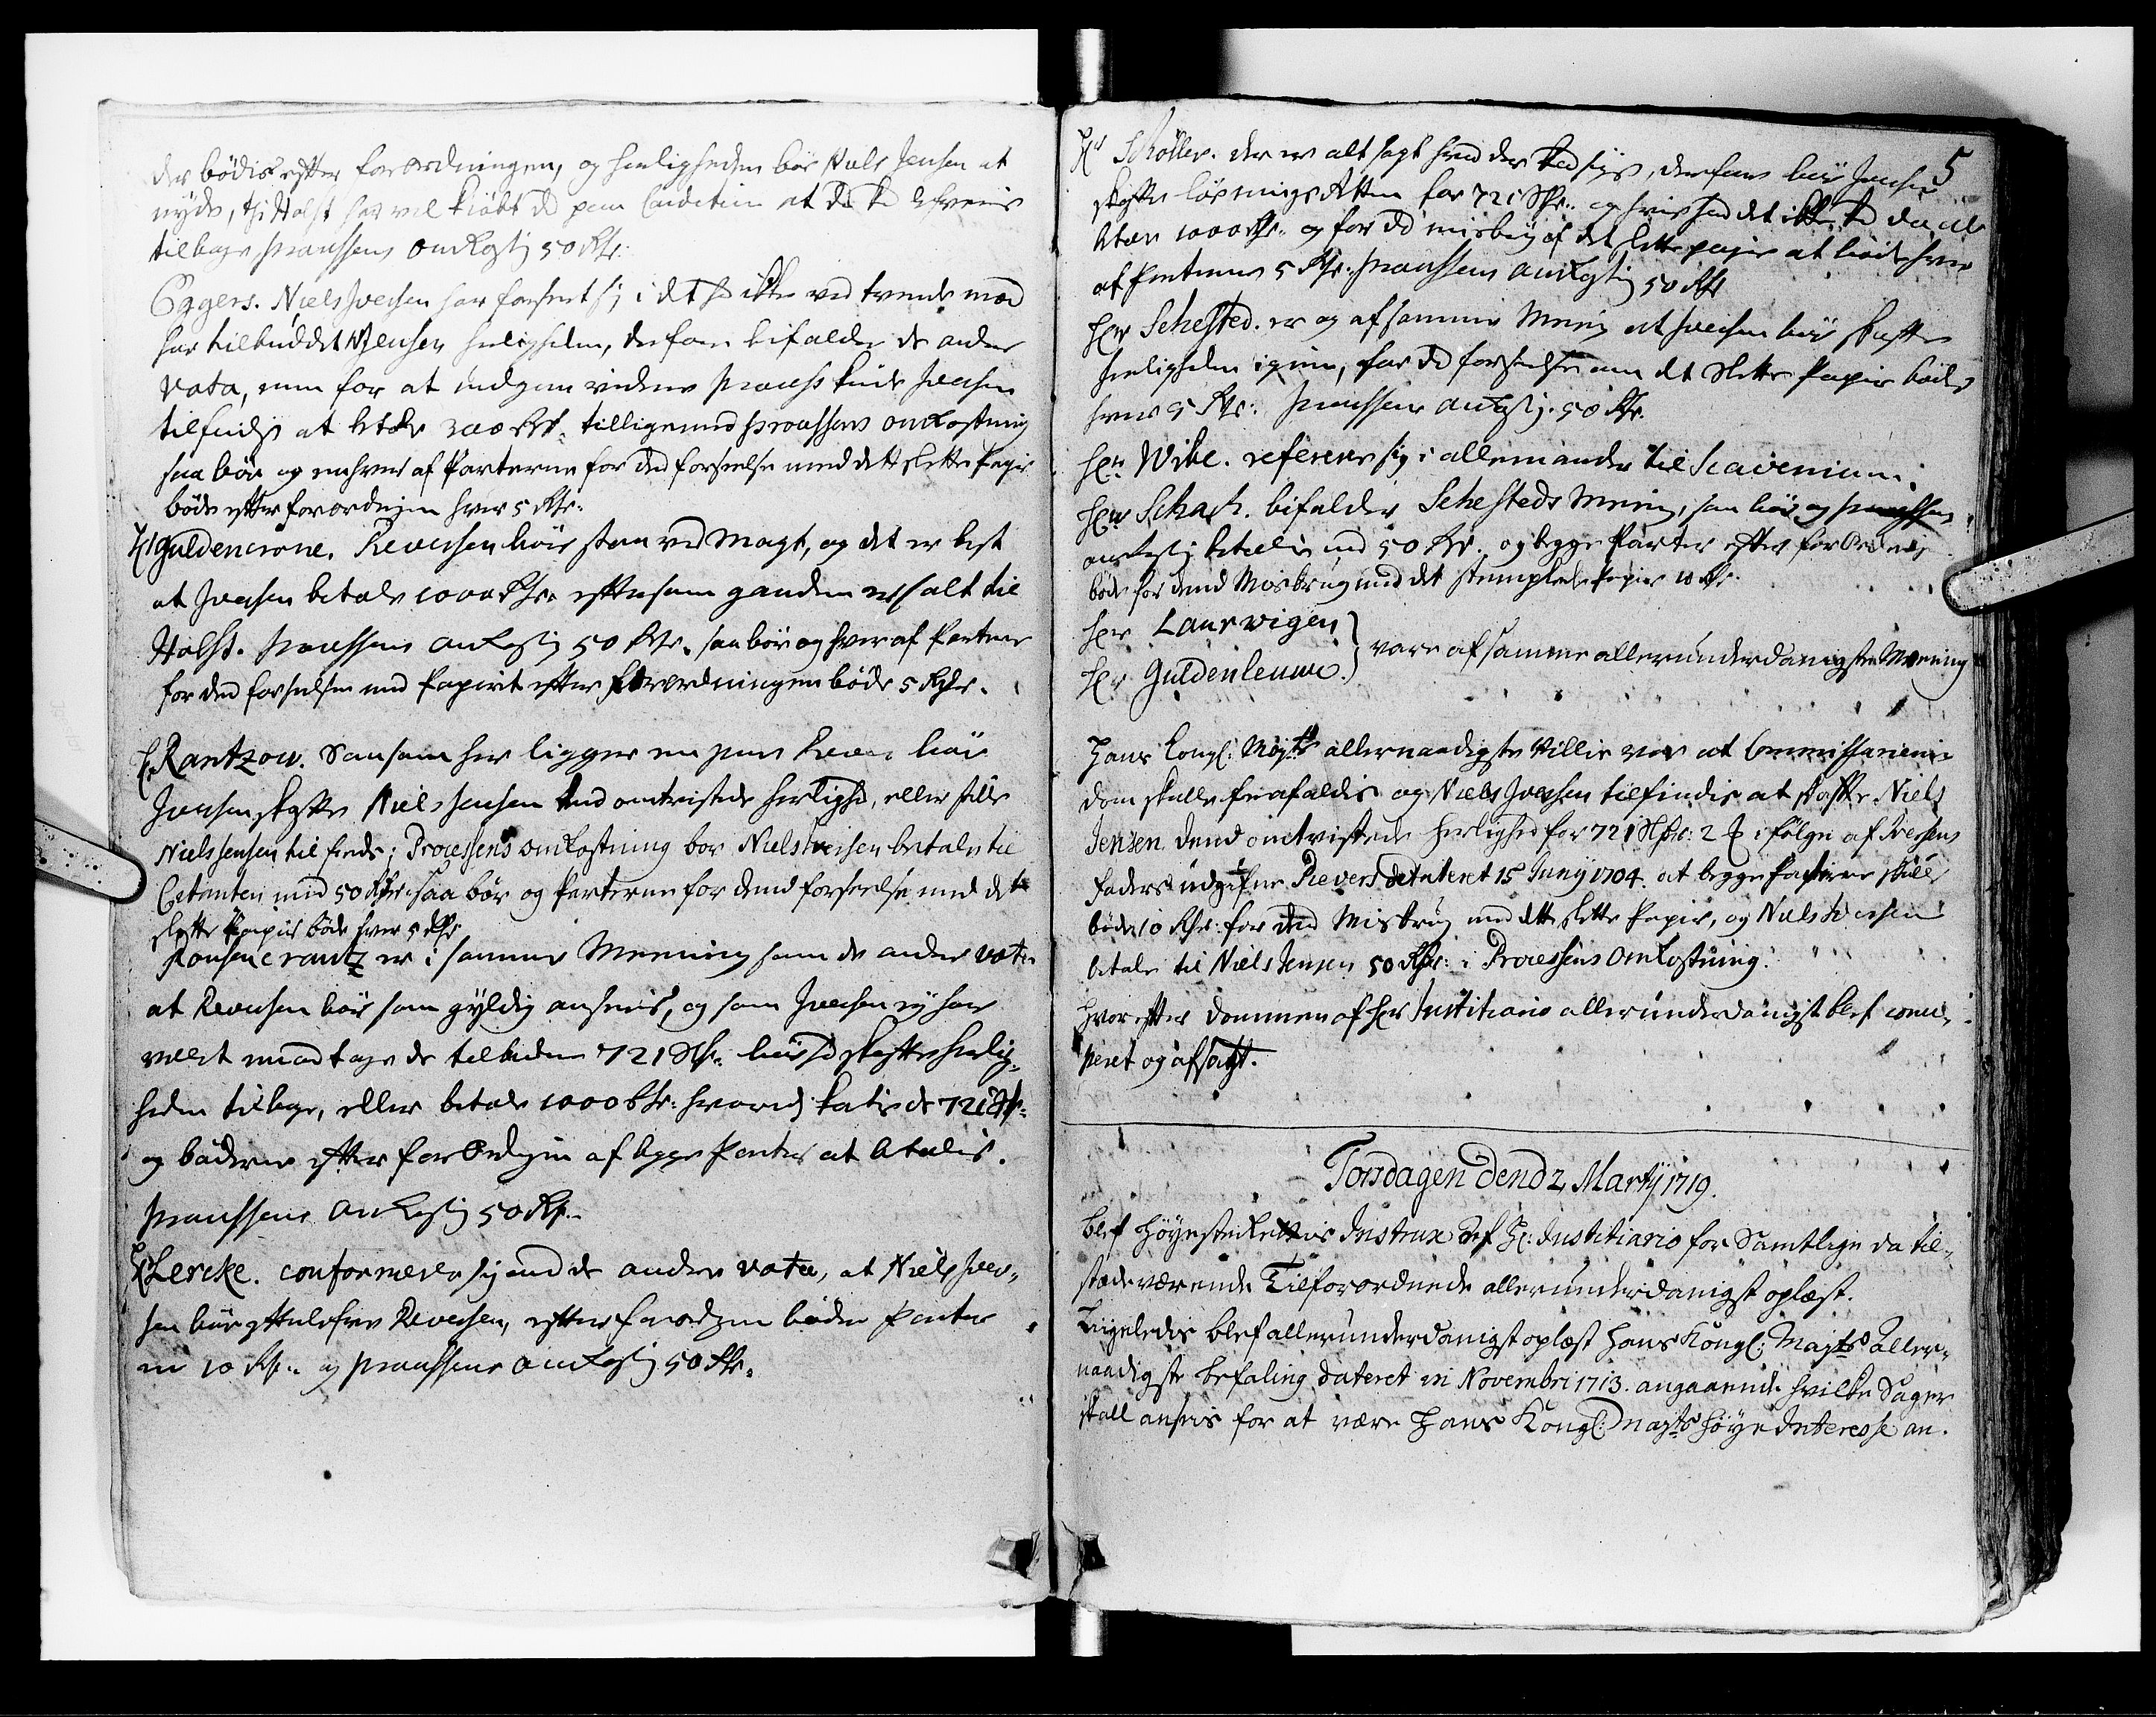 der bødis efter forordningen, og herligheden bør Niels Jensen at
nyde, thi Holst har vel kiøbt d paa Condition at
tilbage processens omkostn 50 Rdr:
Eggers. Niels Iversen har forseet sig i det hd ikke ved tvende mænd
har tilbuddet N Jensen herligheden, derfore bifalder de andre
vota, men for at undgaae videre process kunde Iversen
tilfindis at betale 300 Rdr. tilligemed processens omkostning
saa bør og enhver af Parterne for den forseelse med det slette Papir
bøde efter forordningen hver 5 Rdr.
H Guldencrone. Reversen bør staae ved magt, og det er best
at Iversen betaler 1000 Rdr. eftersom gaarden er solt til
Holst. processens omkostn 50 Rdr. saa bør og hver af Parterne
for den forseelse med Papiret efter forordningen bøde 5 Rdr.
H Rantzow. Saasom her ligger en pure Revers bør
Iversen skaffe Niels Jensen dend omtvistede herlighed, eller stille
Niels Jensen til freds; Processens omkostning bør Niels Iversen betale til
Citanten med 50 Rdr. saa bør og Parterne for dend forseelse med det
slette Papir bøde hver 5 Rdr.
Rosencrantz er i samme Meening som de andre vota
at Reversen bør som gyldig ansees, og som Iversen ej har
villet modtage de tilbudne 721 Rdr. bør hd skaffe herlig-
heden tilbage, eller betale 1000 Rdr. hvorudj de 721 Rdr.
og bøderne efter forordningen af begge Parter at betalis.
processens omkostn 50 Rdr.
H Lercke. conformerer sig med de andre vota, at Niels Iver-
sen bør efterlefve Reversen, efter forordningen bøder Parter
ne 10 Rdr. og processens omkostn 50 Rdr.
5
H Schøller. der er alt sagt hvad der kand sigis, derfore bør Iversen
skaffe for 721 Rdr. og hvis hand det ikke kd da at
betale 1000 Rdr. og for dd misbrug af det slette papir at bøde hver
af Parterne 5 Rdr. processens omkostn 50 Rdr
Her Sehested. er og af samme Mening at Iversen bør skaffe
herligheden igien, for dd forseelse om det slette Papir bøde
hver 5 Rdr. processens omkostn. 50 Rdr.
Her Wibe. referere sig i alle maader til Scavenium.
Her Schack. bifalder Sehesteds Mening, saa bør og processens
omkostn betalis med 50 Rdr. og begge Parter efter forordning
bøde for dend Misbrug med det stemplede Papir 10 Rdr.
Her Laurwigen
Her Guldenleuwe. } vare af samme allerunderdanigste Meening
Hans Kongl: Mayts allernaadigste Villie var at Commissariernis
dom skulle frafaldis og Niels Iversen tilfindis at skaffe Niels
Jensen dend omtvistede herlighed for 721 Rdr: 2 ß i følge af Iversens
Faders udgifne Revers dateret 15 Junij 1704. at begge Parterne skulle
bøde 10 Rdr. for dend Misbrug med det slette Papir, og Niels Iversen
betale til Niels Jensen 50 Rdr. i Processens Omkostning.
Hvorefter Dommen af Her Justitiario allerunderdanigst blef conci-
peret og afsagt.
Torsdagen dend 2 Martij 1719.
blef Høyeste Rettis Instrux af H: Justitiario for Samtlige da til-
stædeværende Tilforordnede allerunderdanigst oplæst.
Ligeledes blef allerunderdanigst oplæst Hans Kongl: Mayts Aller-
naadigste befaling dateret in Novembri 1713. angaaende hvilke Sager
skall ansees for at være Hans Kongl: Mayts høye Interesse an.